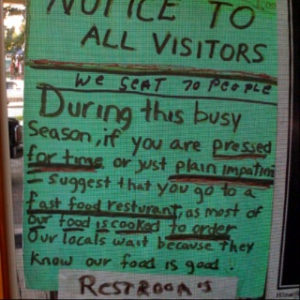 NOTICE TO
ALL VISITORS
WE SEAT 70 PEOPLE
During this busy
Season, if you are pressed
for time or just plain impatient
- suggest that you go to a
fast food resturant, as most of
our food is cooked to order
Our locals wait because they
know our food is good.
RESTROOM'S